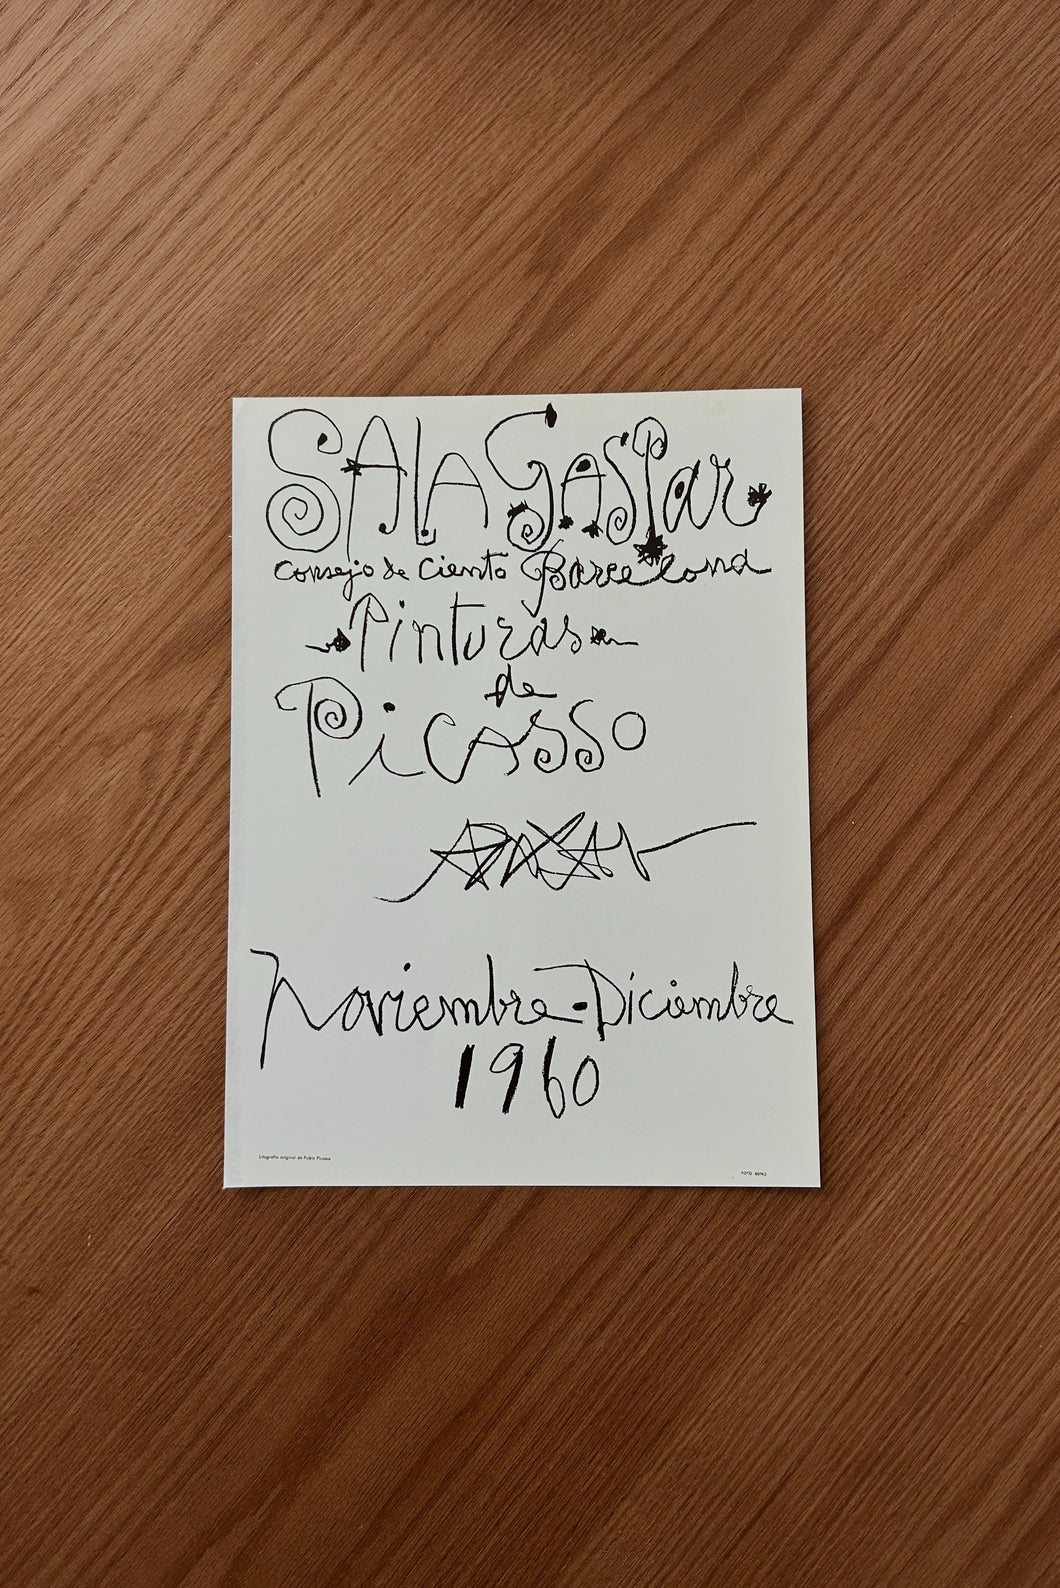 SALA GASPar
Consejo de Ciento Barcelona
Pinturas
de
PiCASSO
Noviembre-Diciembre
1960
Litografía original de Pablo Picasso
FOTO REPRO